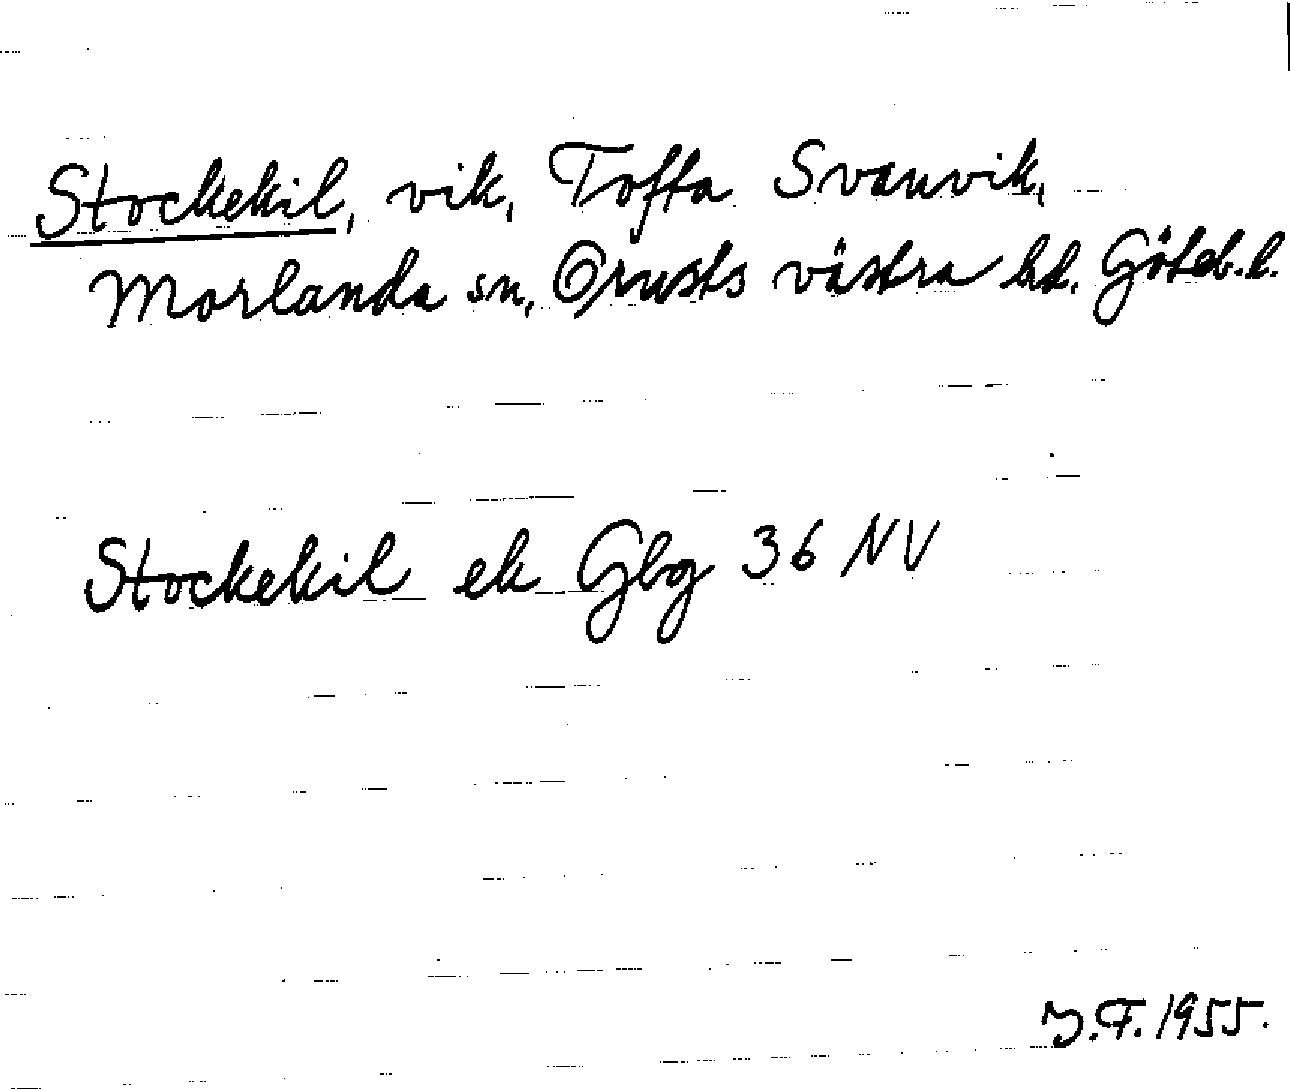 Stockekil, vik, Tofta Svanvik,
Morlanda sn, Orusts västra hd. Göteb. l.
Stockekil ek Gbg 36 NV
J.F. 1955.